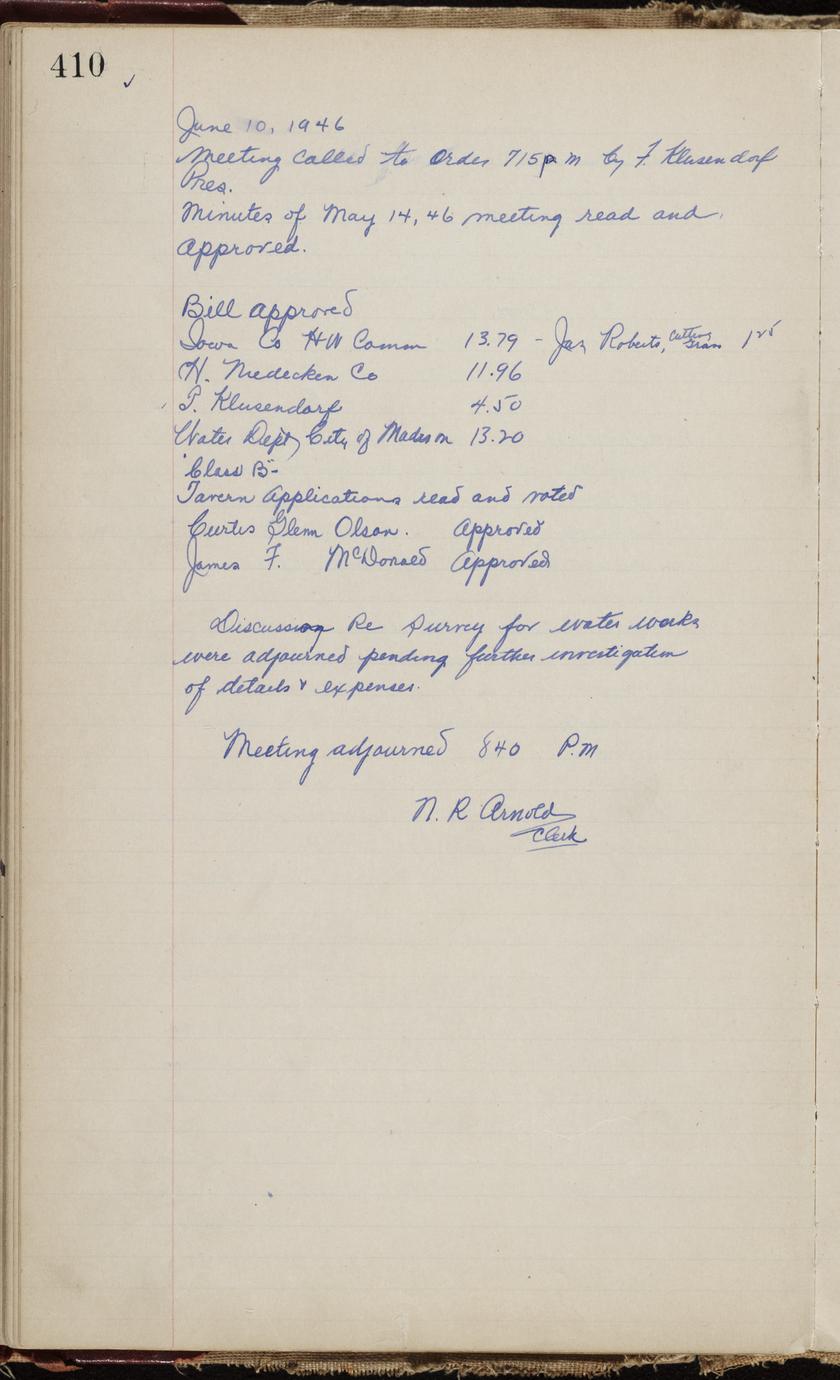 410
June 10, 1946
Meeting called to order 715 p m by F. Klusendorf
Pres.
Minutes of May 14, 46 meeting read and
approved.
Bill approved
Iowa Co HW Comm 13.79 - Jas Roberts, Cutting Grass 1 25
H. Niedecken Co 11.96
F. Klusendorf 4.50
Water Dept, City of Madison 13.20
"Class B"-
Tavern Applications read and voted
Curtis Glenn Olson. Approved
James F. McDonald Approved
Discussing Re Survey for water works
were adjourned pending further investigation
of details & expenses.
Meeting adjourned 840 P.M
N. R Arnold
Clerk